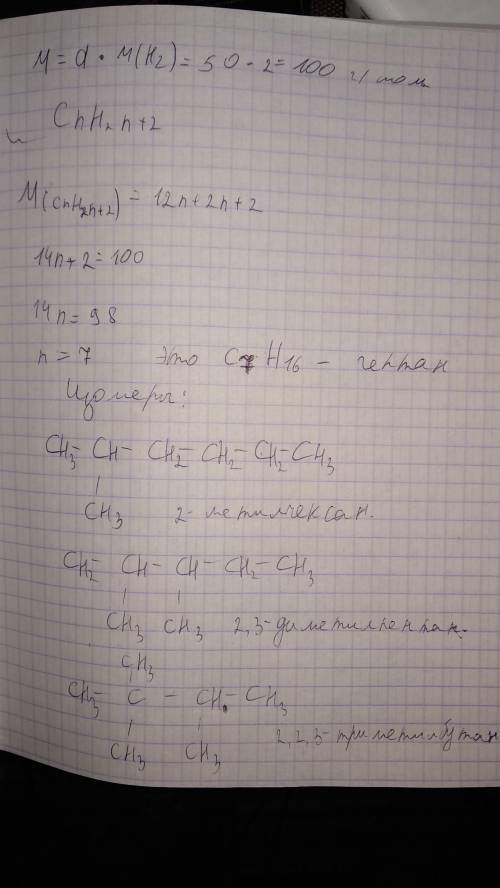 M = d • M(H₂) = 50 • 2 = 100 г/моль
CnH₂n+2
M(CnH₂n+2) = 12n + 2n + 2
14n + 2 = 100
14n = 98
n = 7 Это C₇H₁₆ – гептан
Изомеры:
CH₃ – CH – CH₂ – CH₂ – CH₂ – CH₃
|
CH₃ 2-метилгексан.
CH₂ – CH – CH – CH₂ – CH₃
| |
CH₃ CH₃ 2,3-диметилпентан.
CH₃
CH₃ – C – CH – CH₃
| |
CH₃ CH₃ 2,2,3-триметилбутан